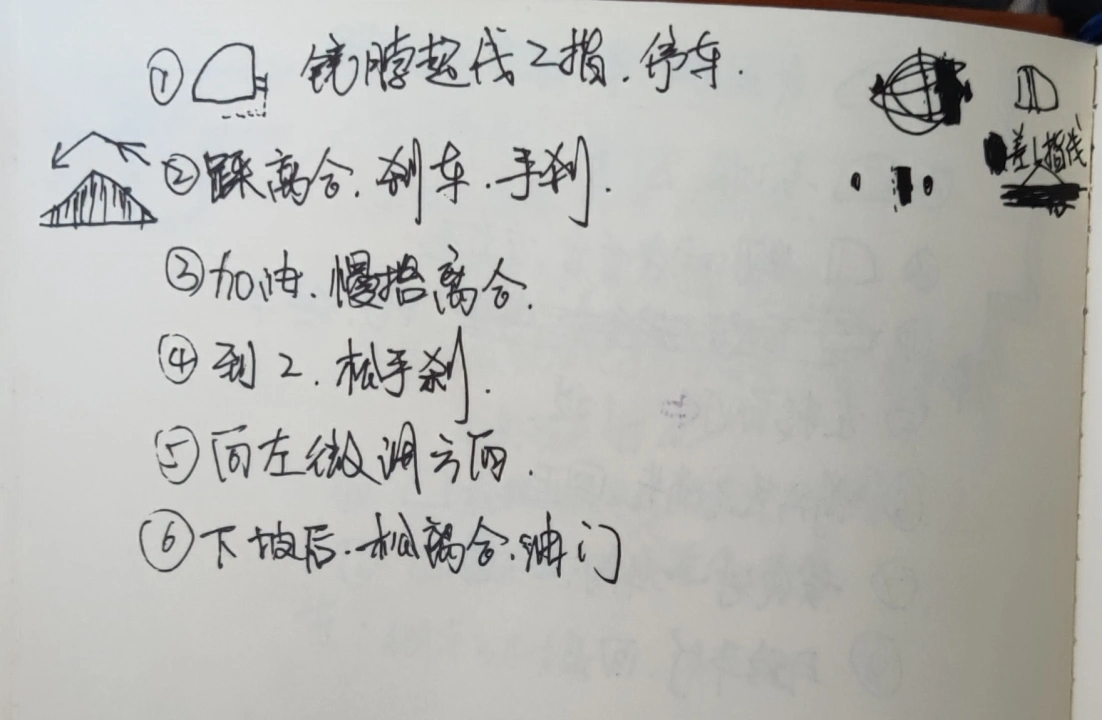 ① 镜脖起线2指.停车.
差1指线
② 踩离合.刹车.手刹.
③ 加油.慢抬离合.
④ 到2.松手刹.
⑤ 向左微调方向.
⑥ 下坡后.松离合.油门